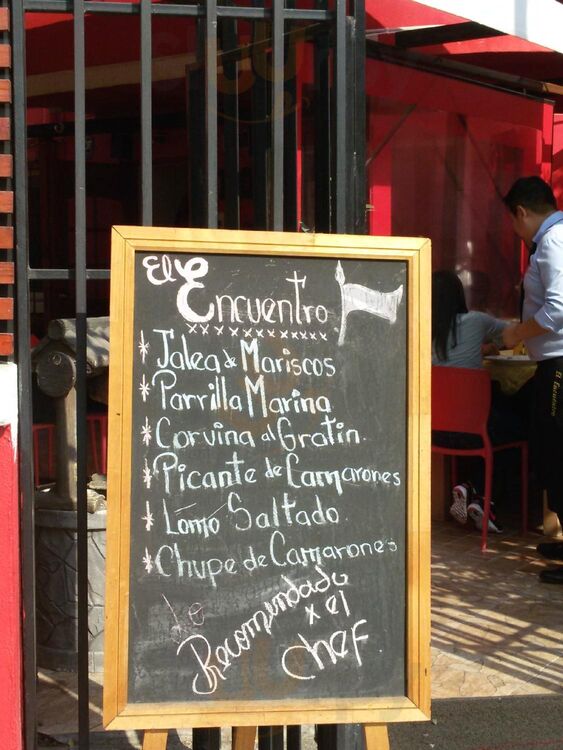 El Encuentro
xxxxxxxxxx
* Jalea de Mariscos
* Parrilla Marina
* Corvina al Gratin.
* Picante de Camarones
* Lomo Saltado.
* Chupe de Camarones
Lo
Recomendado
x el
chef
El Encuentro